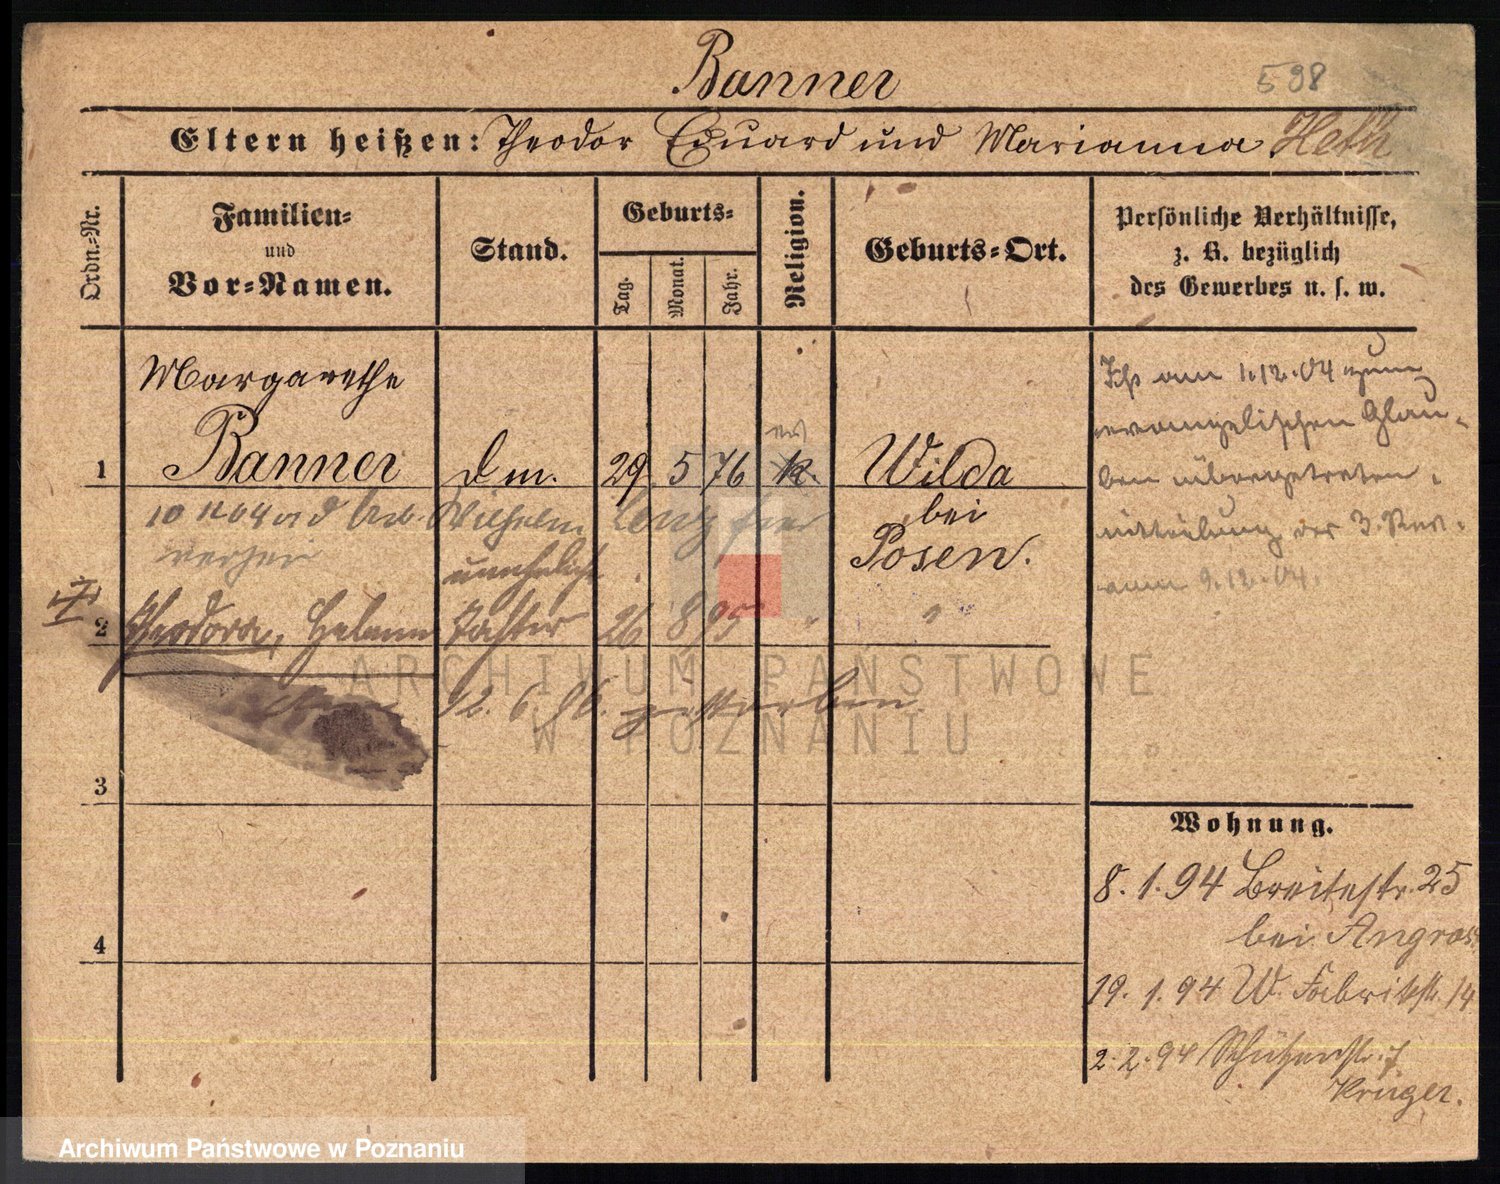 Banner
598
Eltern heißen: Theodor Eduard und Marianna Heth
Ordn.=Nr.
Familien=
und
Vor=Namen.
Stand.
Geburts=
Tag.
Monat.
Jahr.
Religion.
Geburts=Ort.
Persönliche Verhältnisse,
z. B. bezüglich
des Gewerbes u. s. w.
Margarethe
1 Banner d m. 29 5 76 k. Wilda
ev
bei
Posen.
10 11 04 a d Arb. Wilhelm Lenz hier
verheir
Ist am 1.12.04 zum
evangelischen Glau-
ben übergetreten.
Mitteilung des 3. Rev.
vom 9.12.04.
unehelich
II
2 Theodora, Helene Tochter 26 8 95 " "
12. 6. 96. gestorben.
3
4
Wohnung.
8. 1. 94 Breitestr. 25
bei Angros
19. 1. 94 W. Fabrikstr. 14
2. 2. 94 Schützenstr. 7
Krüger.
ARCHIWUM PAŃSTWOWE
W POZNANIU
Archiwum Państwowe w Poznaniu